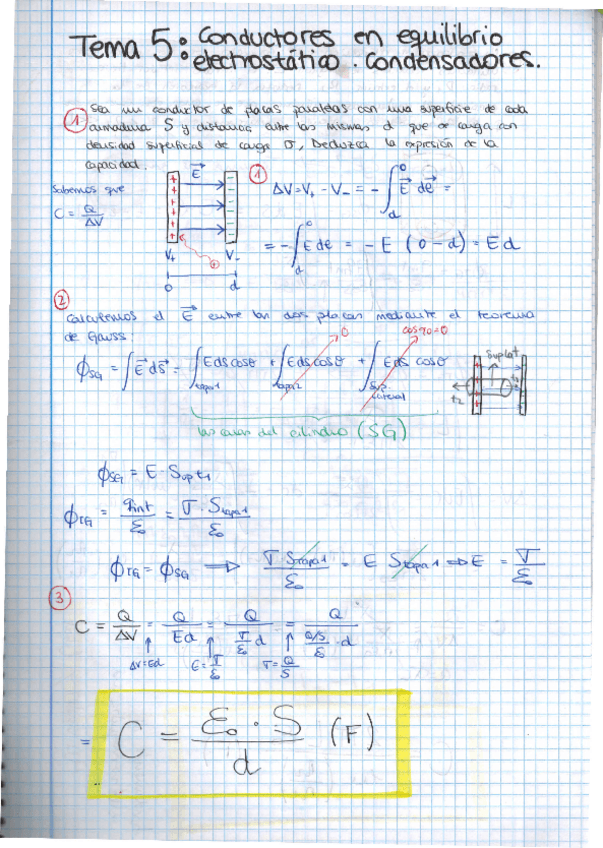 Tema 5: Conductores en equilibrio
electrostático. Condensadores.
① Sea un conductor de placas paralelas con una superficie de cada
armadura S y distancia entre las mismas d que se carga con
densidad superficial de carga σ, Deduzca la expresión de la
capacidad.
Sabemos que
C = Q/ΔV
E⃗
V+ V-
0 d
① ΔV = V+ - V- = - ∫_d^0 E⃗ de⃗ =
= - ∫_d^0 E de = - E (0-d) = Ed
②
Calculemos el E⃗ entre las dos placas mediante el teorema
de Gauss:
0 cos90=0
ϕSG = ∫ E⃗ ds⃗ = ∫tapa1 E ds cosθ + ∫tapa2 E ds cosθ + ∫Sup. Lateral E ds cosθ
Sup lat
t2 t1
las caras del cilindro (SG)
ϕSG = E · Supt1
ϕTG = qint/ε₀ = σ · Stapa1/ε₀
ϕTG = ϕSG ⟹ σ Stapa1/ε₀ = E Stapa1 ⟹ E = σ/ε₀
③
C = Q/ΔV = Q/Ed = Q/(σ/ε₀ d) = Q/(Q/S/ε₀ · d)
ΔV=Ed E=σ/ε₀ σ=Q/S
= C = ε₀ · S/d (F)